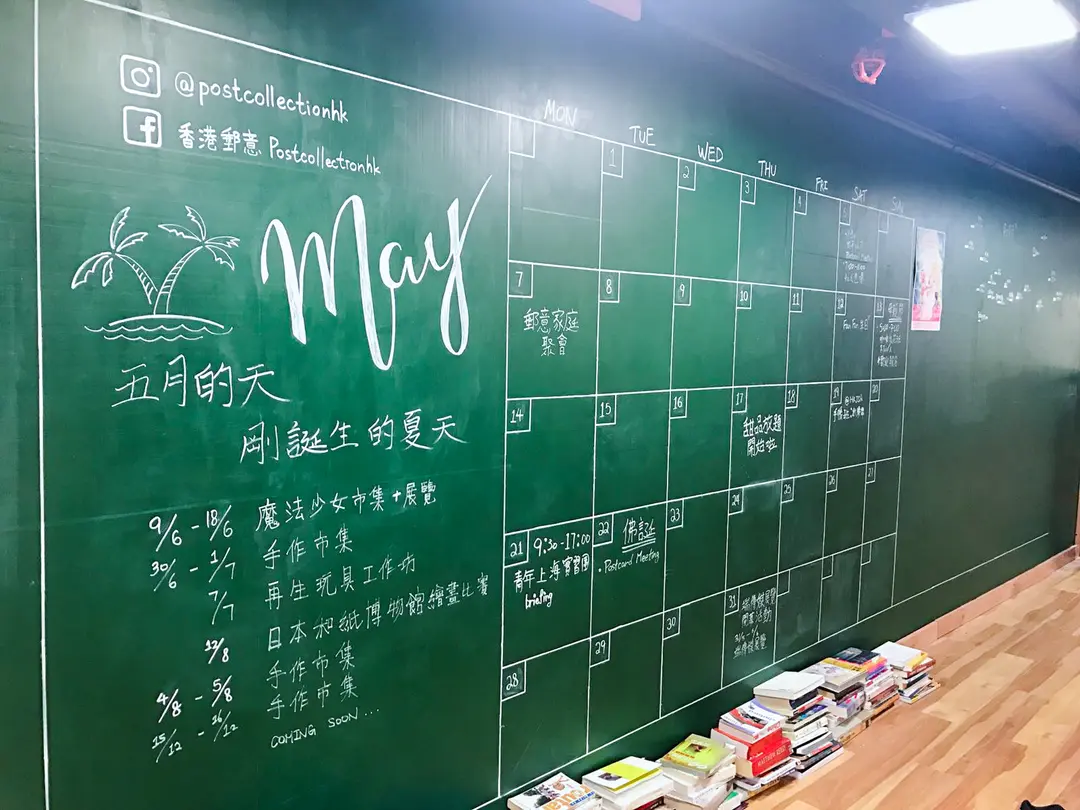 @postcollectionhk
香港郵意 Postcollectionhk
May
五月的天
剛誕生的夏天
9/6 - 18/6 魔法少女市集+展覽
30/6 - 1/7 手作市集
7/7 再生玩具工作坊
日本和紙博物館繪畫比賽
4/8 - 5/8 手作市集
15/12 - 16/12 手作市集
COMING SOON...
MON TUE WED THU FRI SAT SUN
1 2 3 4 5
7 8 9 10 11 12 13
郵意家庭
聚會
14 15 16 17 18 19 20
甜品放題
開始啦
21 22 23 24 25 26 27
9:30-17:00
青年上海實習團
briefing
佛誕
• Postcard Meeting
28 29 30 31